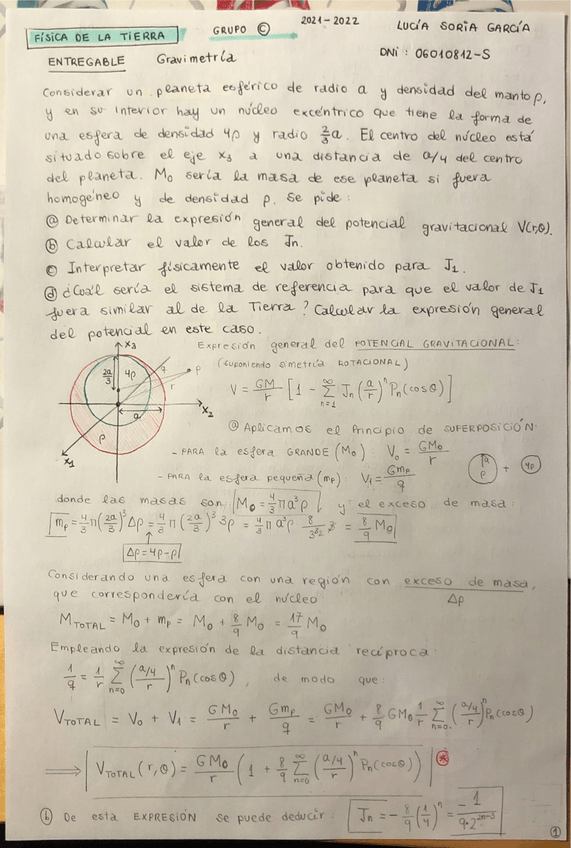 2021-2022
FÍSICA DE LA TIERRA GRUPO Ⓒ LUCÍA SORIA GARCÍA
ENTREGABLE Gravimetría DNI: 06010812-S
Considerar un planeta esférico de radio a y densidad del manto ρ,
y en su interior hay un núcleo excéntrico que tiene la forma de
una esfera de densidad 4ρ y radio 2/3 a. El centro del núcleo está
situado sobre el eje x₃ a una distancia de a/4 del centro
del planeta. M₀ sería la masa de ese planeta si fuera
homogéneo y de densidad ρ. Se pide:
ⓐ Determinar la expresión general del potencial gravitacional V(r,θ).
ⓑ Calcular el valor de los Jn.
ⓒ Interpretar físicamente el valor obtenido para J₁.
ⓓ ¿Cuál sería el sistema de referencia para que el valor de J₁
fuera similar al de la Tierra? Calcular la expresión general
del potencial en este caso.
x₃
2a/3 4ρ q P r
a x₂
ρ
x₁
Expresión general del POTENCIAL GRAVITACIONAL:
(suponiendo simetría ROTACIONAL)
V = GM/r [1 - ∑n=1^∞ Jn (a/r)^n Pn(cosθ)]
ⓐ Aplicamos el Principio de SUPERPOSICIÓN:
- PARA la esfera GRANDE (M₀): V₀ = GM₀/r
- PARA la esfera pequeña (mp): V₁ = Gmp/q
a ρ + 4ρ
donde las masas son M₀ = 4/3 π a³ρ y el exceso de masa:
mp = 4/3 π (2a/3)³ Δρ = 4/3 π (2a/3)³ 3ρ = 4/3 π a³ρ 8/3³² 3 = 8/9 M₀
Δρ = 4ρ - ρ
Considerando una esfera con una región con exceso de masa,
que correspondería con el núcleo: Δρ
MTOTAL = M₀ + mp = M₀ + 8/9 M₀ = 17/9 M₀
Empleando la expresión de la distancia recíproca:
1/q = 1/r ∑n=0^∞ (a/4/r)^n Pn(cosθ), de modo que:
VTOTAL = V₀ + V₁ = GM₀/r + Gmp/q = GM₀/r + 8/9 GM₀ 1/r ∑n=0^∞ (a/4/r)^n Pn(cosθ)
⟹ VTOTAL(r,θ) = GM₀/r (1 + 8/9 ∑n=0^∞ (a/4/r)^n Pn(cosθ)) *
ⓑ De esta EXPRESIÓN se puede deducir: Jn = - 8/9 (1/4)^n = -1/9·2^(2n-3)
①